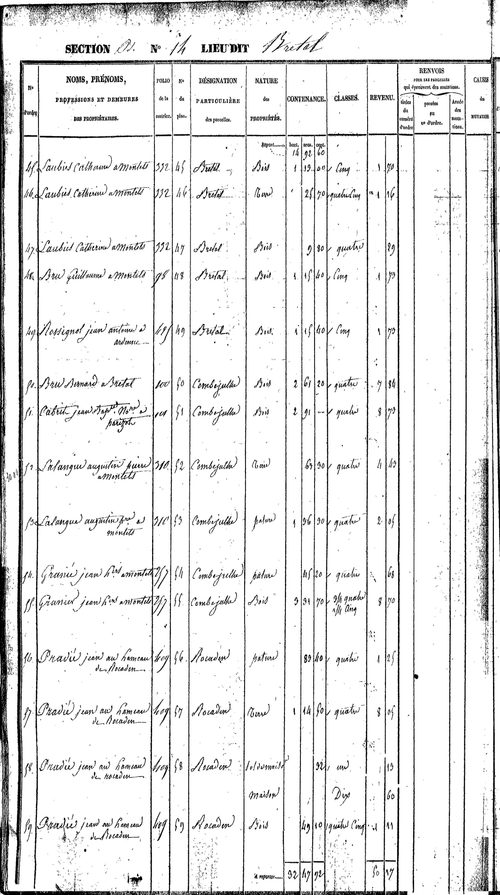 SECTION B. N° 14 LIEU DIT Bretal
N° d'ordre
NOMS, PRÉNOMS, PROFESSIONS ET DEMEURES DES PROPRIÉTAIRES.
FOLIO de la matrice.
N° du plan.
DÉSIGNATION PARTICULIÈRE des parcelles.
NATURE des PROPRIÉTÉS.
CONTENANCE.
CLASSES.
REVENU.
RENVOIS POUR DES PARCELLES qui éprouvent des mutations.
CAUSES de MUTATION
Report hect. ares. cent.
14 92 60
45. Laubiès Catherine a Montels 332 45 Bretal Bois 1 13 00 Cinq 1 70
46. Laubiès Catherine a Montels 332 46 Bretal Terre 25 70 quatre Cinq 1 16
47. Laubiès Catherine a Montels 332 47 Bretal Bois 9 80 quatre 29
48. Bru Guillaume a Montels 98 48 Bretal Bois 1 15 40 Cinq 1 73
49. Rossignol jean antoine a 49 Bretal Bois 1 15 40 Cinq 1 73
50. Bru Bernard a Bretal 100 50 Combejulhe Bois 2 61 20 quatre 7 84
51. Cabrit jean 51 Combejulhe Bois 2 91 quatre 8 73
52. Lalangue augustin pierre 52 Combejulhe 63 30 quatre 4 43
a Montels
53. Lalangue augustin a 53 Combejulhe pature 1 36 30 quatre 2 05
montels
54. Granié jean a montels 257 54 Combejulhe pature 45 20 quatre 68
55. Granier jean a montels 257 55 Combejulhe Bois 3 31 70 3/4 quatre 1/4 cinq 8 70
56. Pradié jean au hameau 409 56 Rocaden pature 83 40 quatre 1 25
de Rocaden
57. Pradié jean au hameau 409 57 Rocaden Terre 1 14 50 quatre 8 05
de Rocaden
58. Pradié jean au hameau 409 58 Rocaden sol de maison 32 un 13
de rocaden
maison Dix 60
59. Pradié jean au hameau 409 59 Rocaden Bois 49 10 quatre Cinq 1 11
de Rocaden
a reporter 32 47 72 50 27